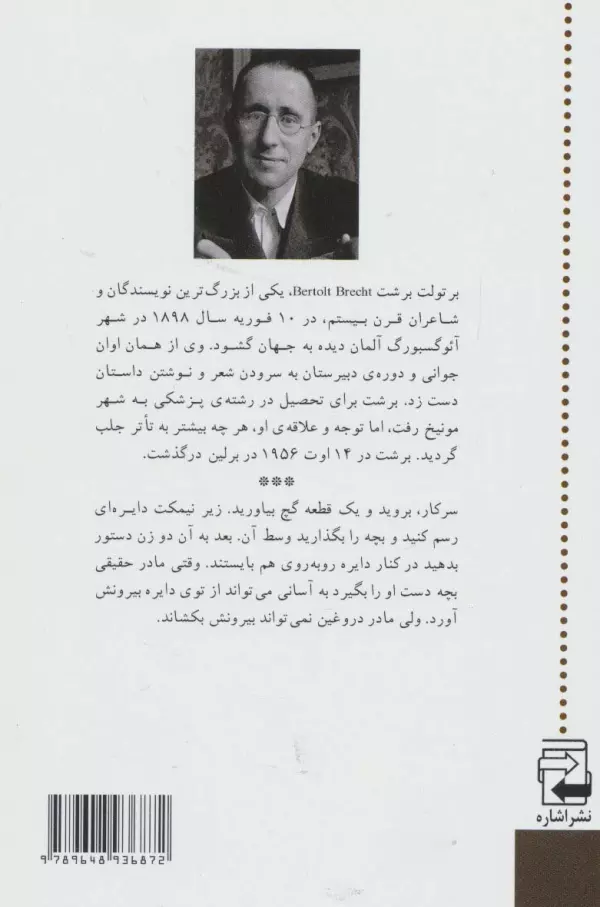 برتولت برشت Bertolt Brecht، یکی از بزرگ‌ترین نویسندگان و
شاعران قرن بیستم، در ۱۰ فوریه سال ۱۸۹۸ در شهر
آئوگسبورگ آلمان دیده به جهان گشود. وی از همان اوان
جوانی و دوره‌ی دبیرستان به سرودن شعر و نوشتن داستان
دست زد. برشت برای تحصیل در رشته‌ی پزشکی به شهر
مونیخ رفت، اما توجه و علاقه‌ی او، هر چه بیشتر به تأتر جلب
گردید. برشت در ۱۴ اوت ۱۹۵۶ در برلین درگذشت.
***
سرکار، بروید و یک قطعه گچ بیاورید. زیر نیمکت دایره‌ای
رسم کنید و بچه را بگذارید وسط آن. بعد به آن دو زن دستور
بدهید در کنار دایره روبه‌روی هم بایستند. وقتی مادر حقیقی
بچه دست او را بگیرد به آسانی می‌تواند از توی دایره بیرونش
آورد. ولی مادر دروغین نمی‌تواند بیرونش بکشاند.
نشر اشاره
9 789648 936872